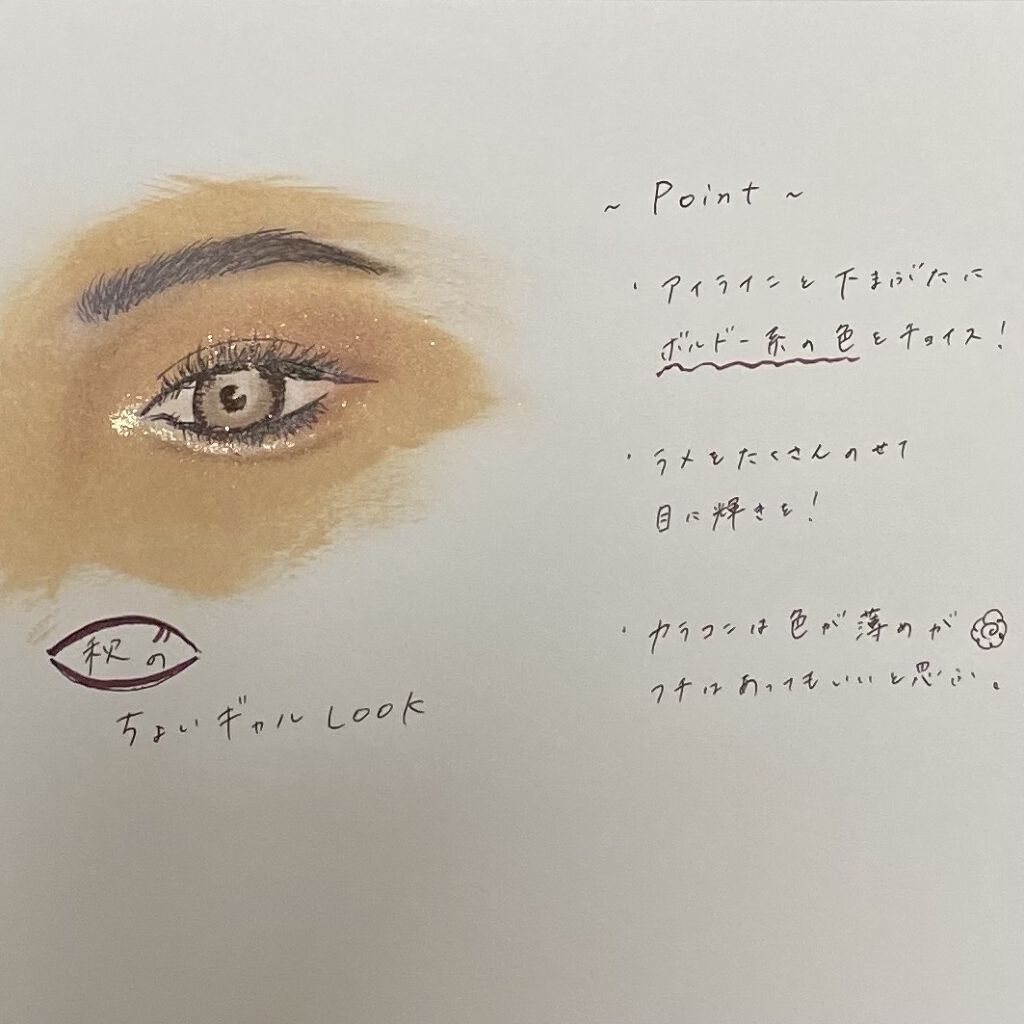 ~ Point ~
・アイラインと下まぶたに
ボルドー系の色をチョイス！
・ラメをたくさんのせて
目に輝きを！
・カラコンは色が薄めが
フチはあってもいいと思ふ。
秋の
ちょいギャル LOOK